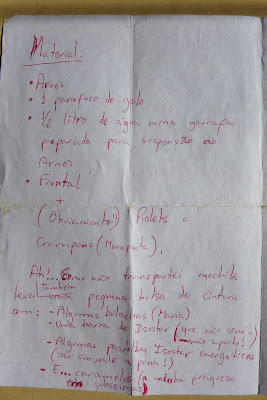 Material:
• Arnés
• 1 parafuso de gelo
• ½ litro de água numa garrafa
preparada para suspensão ao
Arnés
• Frontal
+
(Obviamente!!) Piolets e
Crampons (Monoponta).
Ah!... Como não transportei mochila
Também
levei pequena bolsa de cintura
com: - Algumas bolachas (Maria)
- Uma barra de Isostar (que não comi -
não suporto!)
- Algumas pastilhas Isostar energéticas
(só em valeu a pena!)
- E... caramelos (a minha fraqueza
guloseimas)